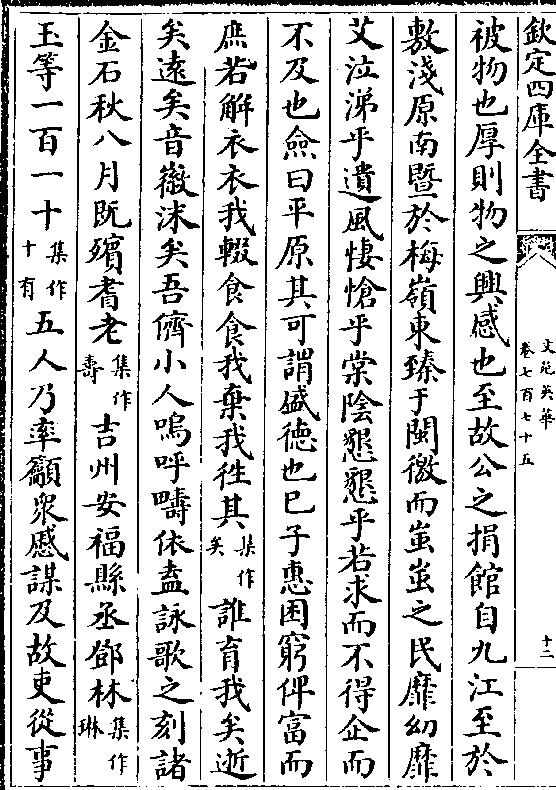 欽定四庫全書
文苑英華
卷七百七十五
十二
被物也厚則物之興感也至故公之捐館自九江至於
敷淺原南暨於梅嶺東臻于閩徼而蚩蚩之民靡幼靡
艾泣涕乎遺風悽愴乎棠陰懇懇乎若求而不得企而
不及也僉曰平原其可謂盛德也已子惠困窮俾富而
庶若解衣衣我輟食食我棄我徃其集作矣誰育我矣逝
矣遠矣音徽沬矣吾儕小人嗚呼疇依盍詠歌之刻諸
金石秋八月既殯耆老集作壽吉州安福縣丞鄧林集作琳
玉等一百一十集作十有五人乃率籲衆慼謀及故吏從事